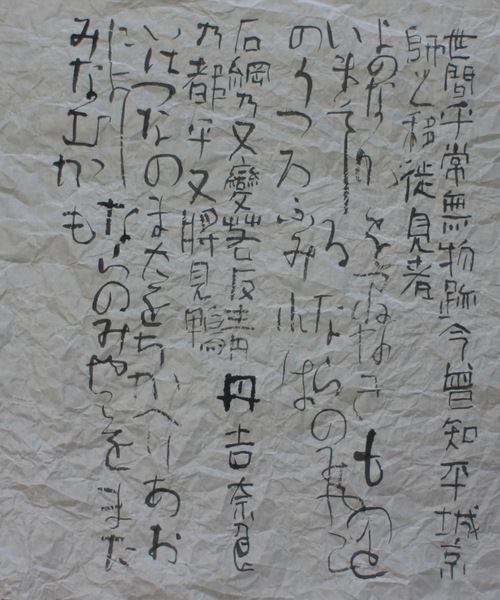 世間乎常無物跡今曾知平城京
師之移徙見者
よのなかをつねなきものと
いまそしる ならのみやこ
のうつろふみれは
石綱乃又變若反青丹吉奈良
乃都乎又將見鴨
いはつなのまたをちかへりあお
によし ならのみやこをまた
みなむかも